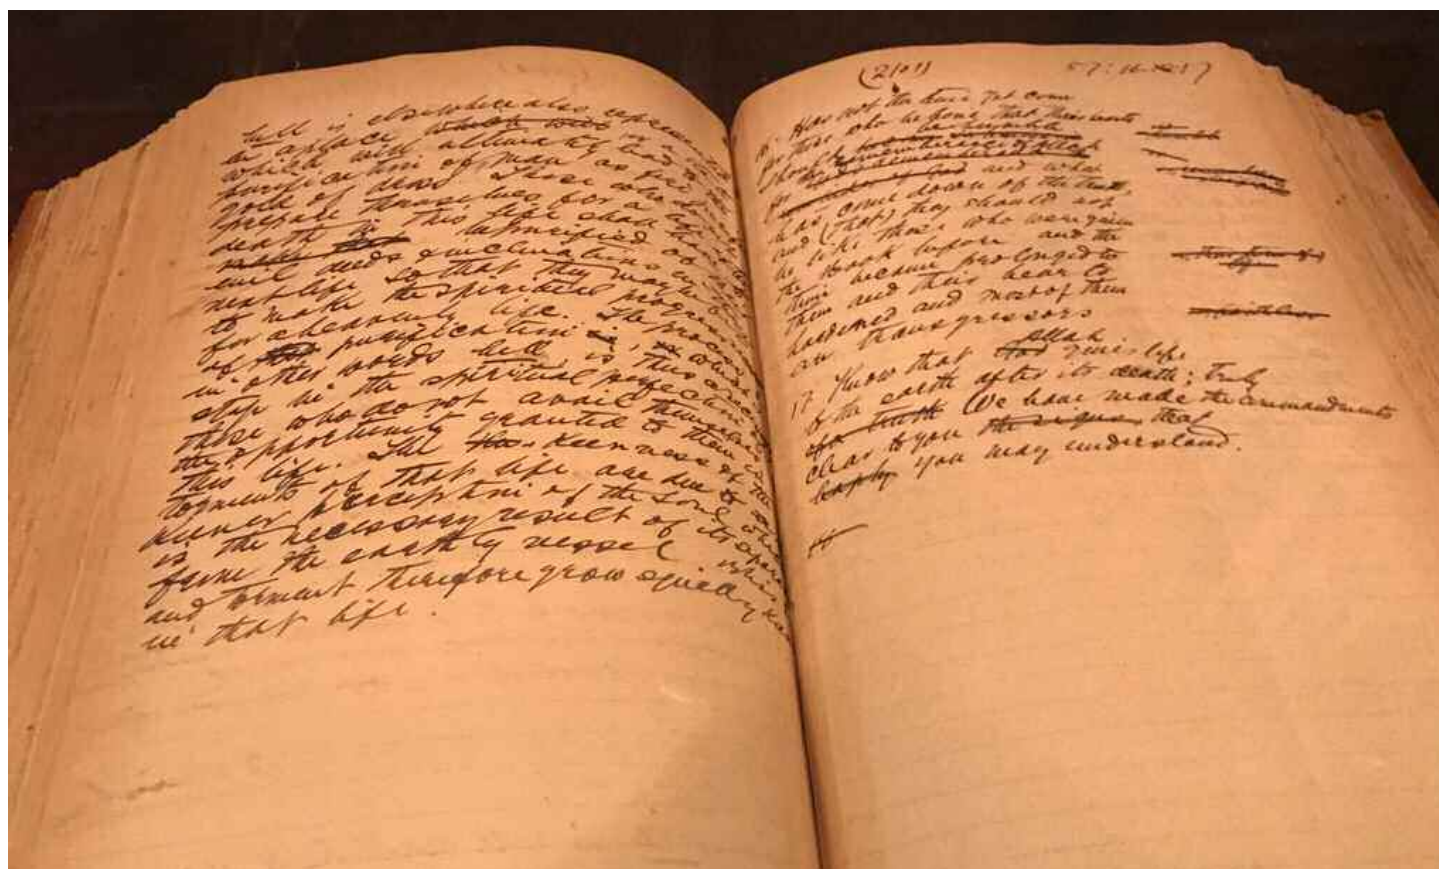 hell is elsewhere also represented
as a place
which will ultimately lead to the
purification of man, as fire
gold of dross. Those who do not
prepare themselves for a life after
death in this life shall have to
be purified of
evil deeds & inclinations in the
next life so that they may be
to make the spiritual progress
for a heavenly life. The process
of purification is, which
in other words hell, is thus a
step in the spiritual perfection of
those who do not avail themselves of
the opportunity granted to them in
this life. The keenness of the
torments of that life are due to
keener perception of the soul which
is the necessary result of its separation
from the earthly vessel
and torment therefore grow equally keen
in that life.
(2101)
57: 16-17
16. Has not the time yet come
for those who believe that their hearts
should be humble
for remembrance of Allah
and what
has come down of the truth,
and (that) they should not
be like those who were given
the Book before and the
time became prolonged to
them and their hearts
hardened and most of them
are transgressors
Allah
17. Know that God gives life
to the earth after its death; truly
of a truth We have made the commandments
clear to you the signs that
haply you may understand.